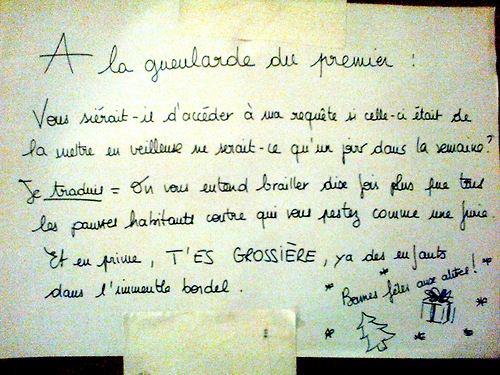 A la gueularde du premier :
Vous siérait-il d'accéder à ma requête si celle-ci était de
la mettre en veilleuse ne serait-ce qu'un jour dans la semaine ?
Je traduis = On vous entend brailler dix fois plus que tous
les pauvres habitants contre qui vous pestez comme une furie.
Et en prime, T'ES GROSSIÈRE, ya des enfants
dans l'immeuble bordel.
Bonnes fêtes aux autres !